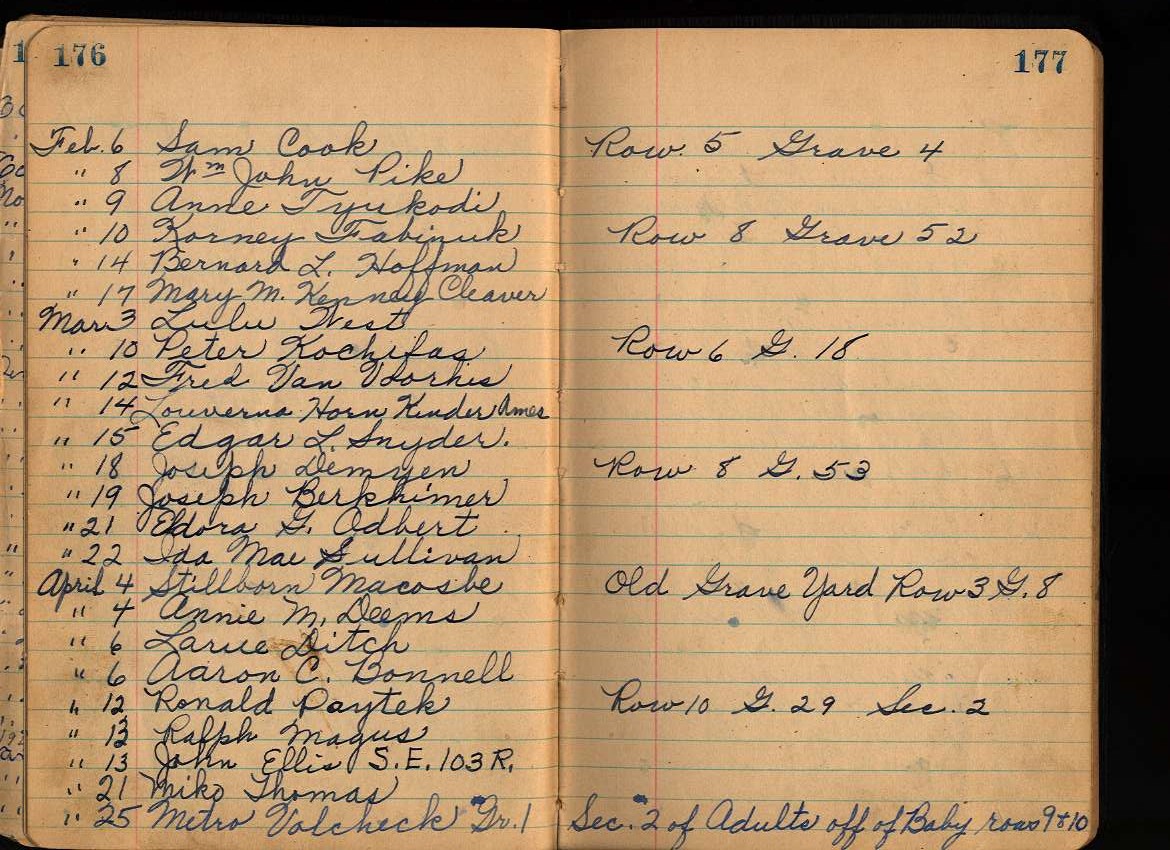 176 177
Feb. 6 Sam Cook Row. 5 Grave 4
" 8 Wm John Pike
" 9 Anne Tyukodi
" 10 Korney Fabinuk Row 8 Grave 52
" 14 Bernard L. Hoffman
" 17 Mary M. Kenney Cleaver
Mar. 3 Lulu West
" 10 Peter Kochifas Row 6 G. 18
" 12 Fred Van Voorhis
" 14 Louverna Horn Kinder Ames
" 15 Edgar L. Snyder.
" 18 Joseph Demyen Row 8 G. 53
" 19 Joseph Berkhimer
" 21 Eldora G. Odbert
" 22 Ida Mae Sullivan
April 4 Stillborn Macosbe Old Grave Yard Row 3 G. 8
" 4 Annie M. Deems
" 6 Larue Ditch
" 6 Aaron C. Bonnell
" 12 Ronald Paytek Row 10 G. 29 Sec. 2
" 13 Ralph Magus
" 13 John Ellis S.E. 103 R.
" 21 Mike Thomas
" 25 Metro Volcheck Gr. 1 Sec. 2 of Adults off of Baby rows 9 & 10